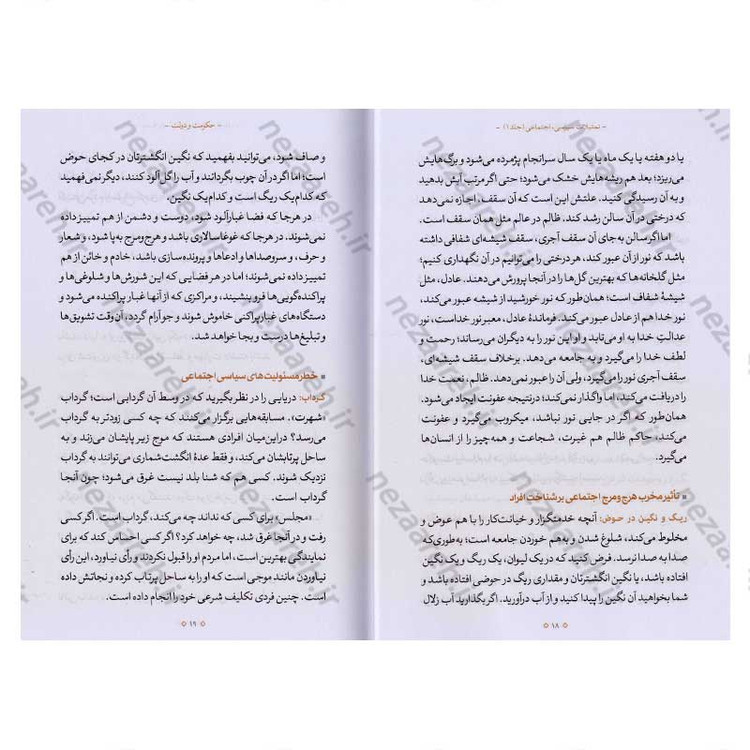 - تمثیلات سیاسی، اجتماعی (جلد ۱) -
یا دو هفته یا یک ماه یا یک سال سرانجام پژمرده می‌شود و برگ‌هایش
می‌ریزد؛ بعد هم ریشه‌هایش خشک می‌شود؛ حتی اگر مرتب آبش بدهید
و به آن رسیدگی کنید. علتش این است که آن سقف، اجازه نمی‌دهد
که درختی در آن سالن رشد کند. ظالم در عالم مثل همان سقف است.
اما اگر سالن به‌جای آن سقف آجری، سقف شیشه‌ای شفافی داشته
باشد که نور از آن عبور کند، هر درختی را می‌توانیم در آن نگهداری کنیم؛
مثل گلخانه‌ها که بهترین گل‌ها را در آنجا پرورش می‌دهند. عادل، مثل
شیشهٔ شفاف است؛ همان‌طور که نور خورشید از شیشه عبور می‌کند،
نور خدا هم از عادل عبور می‌کند. فرماندهٔ عادل، معبر نور خداست، نور
عدالتِ خدا به او می‌تابد و او این نور را به دیگران می‌رساند؛ رحمت و
لطف خدا را می‌گیرد و به جامعه می‌دهد. برخلاف سقف شیشه‌ای،
سقف آجری نور را می‌گیرد، ولی آن را عبور نمی‌دهد. ظالم، نعمت خدا
را دریافت می‌کند، اما واگذار نمی‌کند؛ درنتیجه عفونت ایجاد می‌شود.
همان‌طور که اگر در جایی نور نباشد، میکروب می‌گیرد و عفونت
می‌کند، حاکم ظالم هم غیرت، شجاعت و همه‌چیز را از انسان‌ها
می‌گیرد.
تأثیر مخرب هرج‌ومرج اجتماعی بر شناخت افراد
ریگ و نگین در حوض: آنچه خدمتگزار و خیانت‌کار را با هم عوض و
مخلوط می‌کند، شلوغ شدن و به‌هم خوردن جامعه است؛ به‌طوری‌که
صدا به صدا نرسد. فرض کنید که در یک لیوان، یک ریگ و یک نگین
افتاده باشد، یا نگین انگشترتان و مقداری ریگ در حوضی افتاده باشد و
شما بخواهید آن نگین را پیدا کنید و از آب درآورید. اگر بگذارید آب زلال
۱۸
- حکومت و دولت -
و صاف شود، می‌توانید بفهمید که نگین انگشترتان در کجای حوض
است؛ اما اگر در آن چوب بگردانند و آب را گل‌آلود کنند، دیگر نمی‌فهمید
که کدام یک ریگ است و کدام یک نگین.
در هرجا که فضا غبارآلود شود، دوست و دشمن از هم تمییز داده
نمی‌شوند. در هرجا که غوغاسالاری باشد و هرج‌ومرج به‌پا شود، و شعار
و حرف، و سروصداها و ادعاها و پرونده‌سازی باشد، خادم و خائن از هم
تمییز داده نمی‌شوند؛ اما در هر فضایی که این شورش‌ها و شلوغی‌ها و
پراکنده‌گویی‌ها فرو بنشیند، و مراکزی که از آنها غبار پراکنده می‌شود و
دستگاه‌های غبارپراکنی خاموش شوند و جو آرام گردد، آن‌وقت تشویق‌ها
و تبلیغ‌ها درست و بجا خواهد شد.
خطر مسئولیت‌های سیاسی اجتماعی
گرداب: دریایی را در نظر بگیرید که در وسط آن گردابی است؛ گرداب
«شهرت». مسابقه‌هایی برگزار می‌کنند که چه کسی زودتر به گرداب
می‌رسد؟ دراین‌میان افرادی هستند که موج زیر پایشان می‌زند و به
ساحل پرتابشان می‌کند، و فقط عدهٔ انگشت‌شماری می‌توانند به گرداب
نزدیک شوند. کسی هم که شنا بلد نیست غرق می‌شود؛ چون آنجا
گرداب است.
«مجلس» برای کسی که نداند چه می‌کند، گرداب است. اگر کسی
رفت و در آنجا غرق شد، چه خواهد کرد؟ اگر کسی احساس کند که برای
نمایندگی بهترین است، اما مردم او را قبول نکردند و رأی نیاورد، این رأی
نیاوردن مانند موجی است که او را به ساحل پرتاب کرده و نجاتش داده
است. چنین فردی تکلیف شرعی خود را انجام داده است.
۱۹
nezaareh.ir